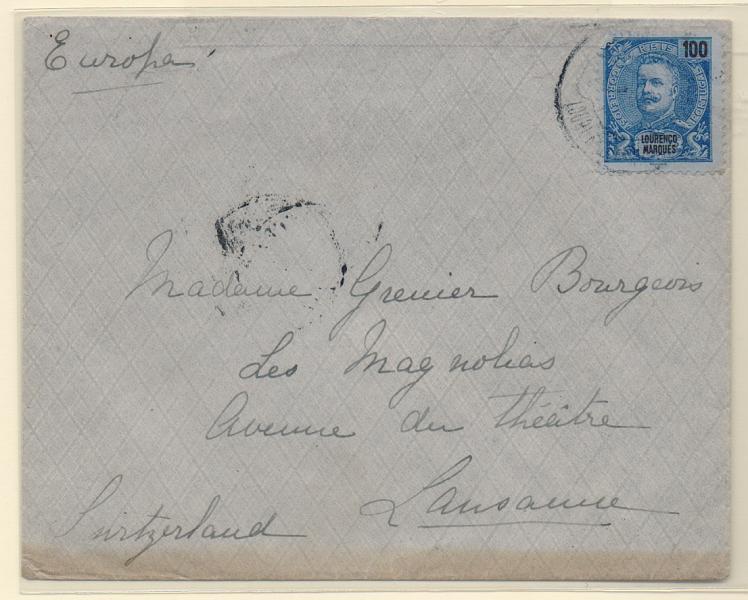 Europa
CORREIOS
PORTUGAL
100
LOURENÇO
MARQUES
Madame Grenier Bourgeois
Les Magnolias
Avenue du théâtre
Lausanne
Switzerland